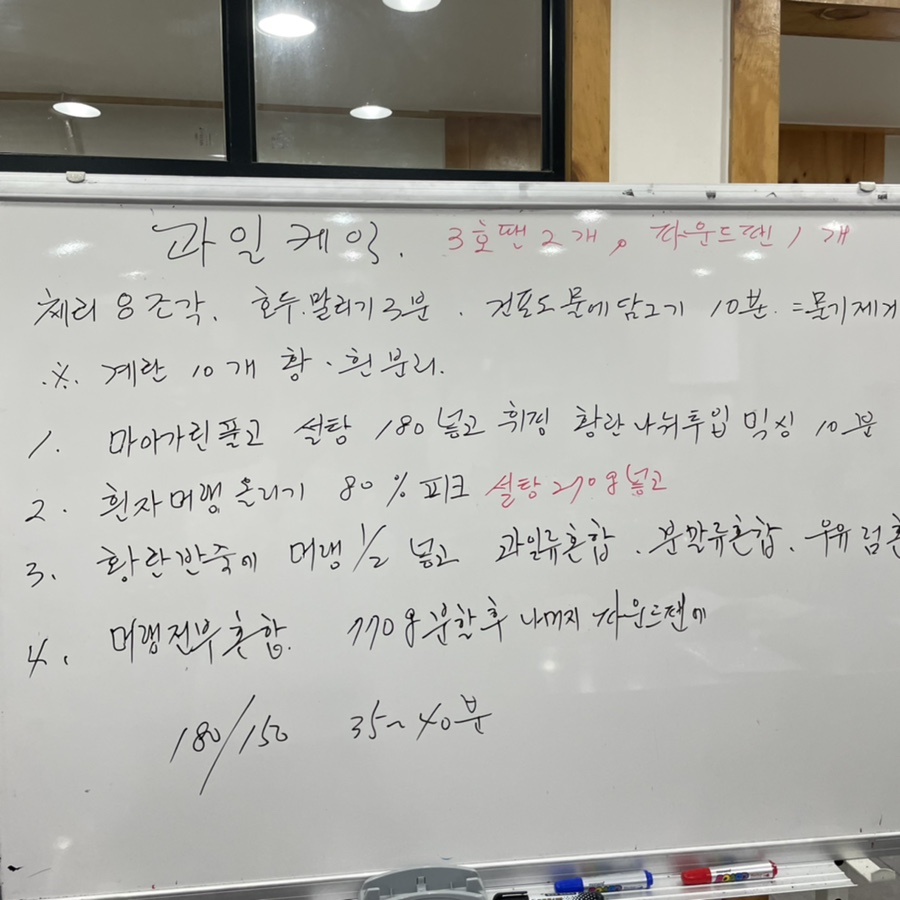 과일케익. 3호팬 2개, 파운드팬 1개
체리 8조각. 호두.말리기 3분. 건포도 물에 담그기 10분. =물기제거
※. 계란 10개 황·흰분리.
1. 마아가린풀고 설탕 180넣고 휘핑 황란나눠투입 믹싱 10분
2. 흰자머랭올리기 80%피크 설탕270g넣고
3. 황란반죽에 머랭 1/2 넣고 과일류혼합. 분말류혼합. 우유 럼혼
4. 머랭전부혼합. 770g분할후 나머지 파운드팬에
180/150 35~40분